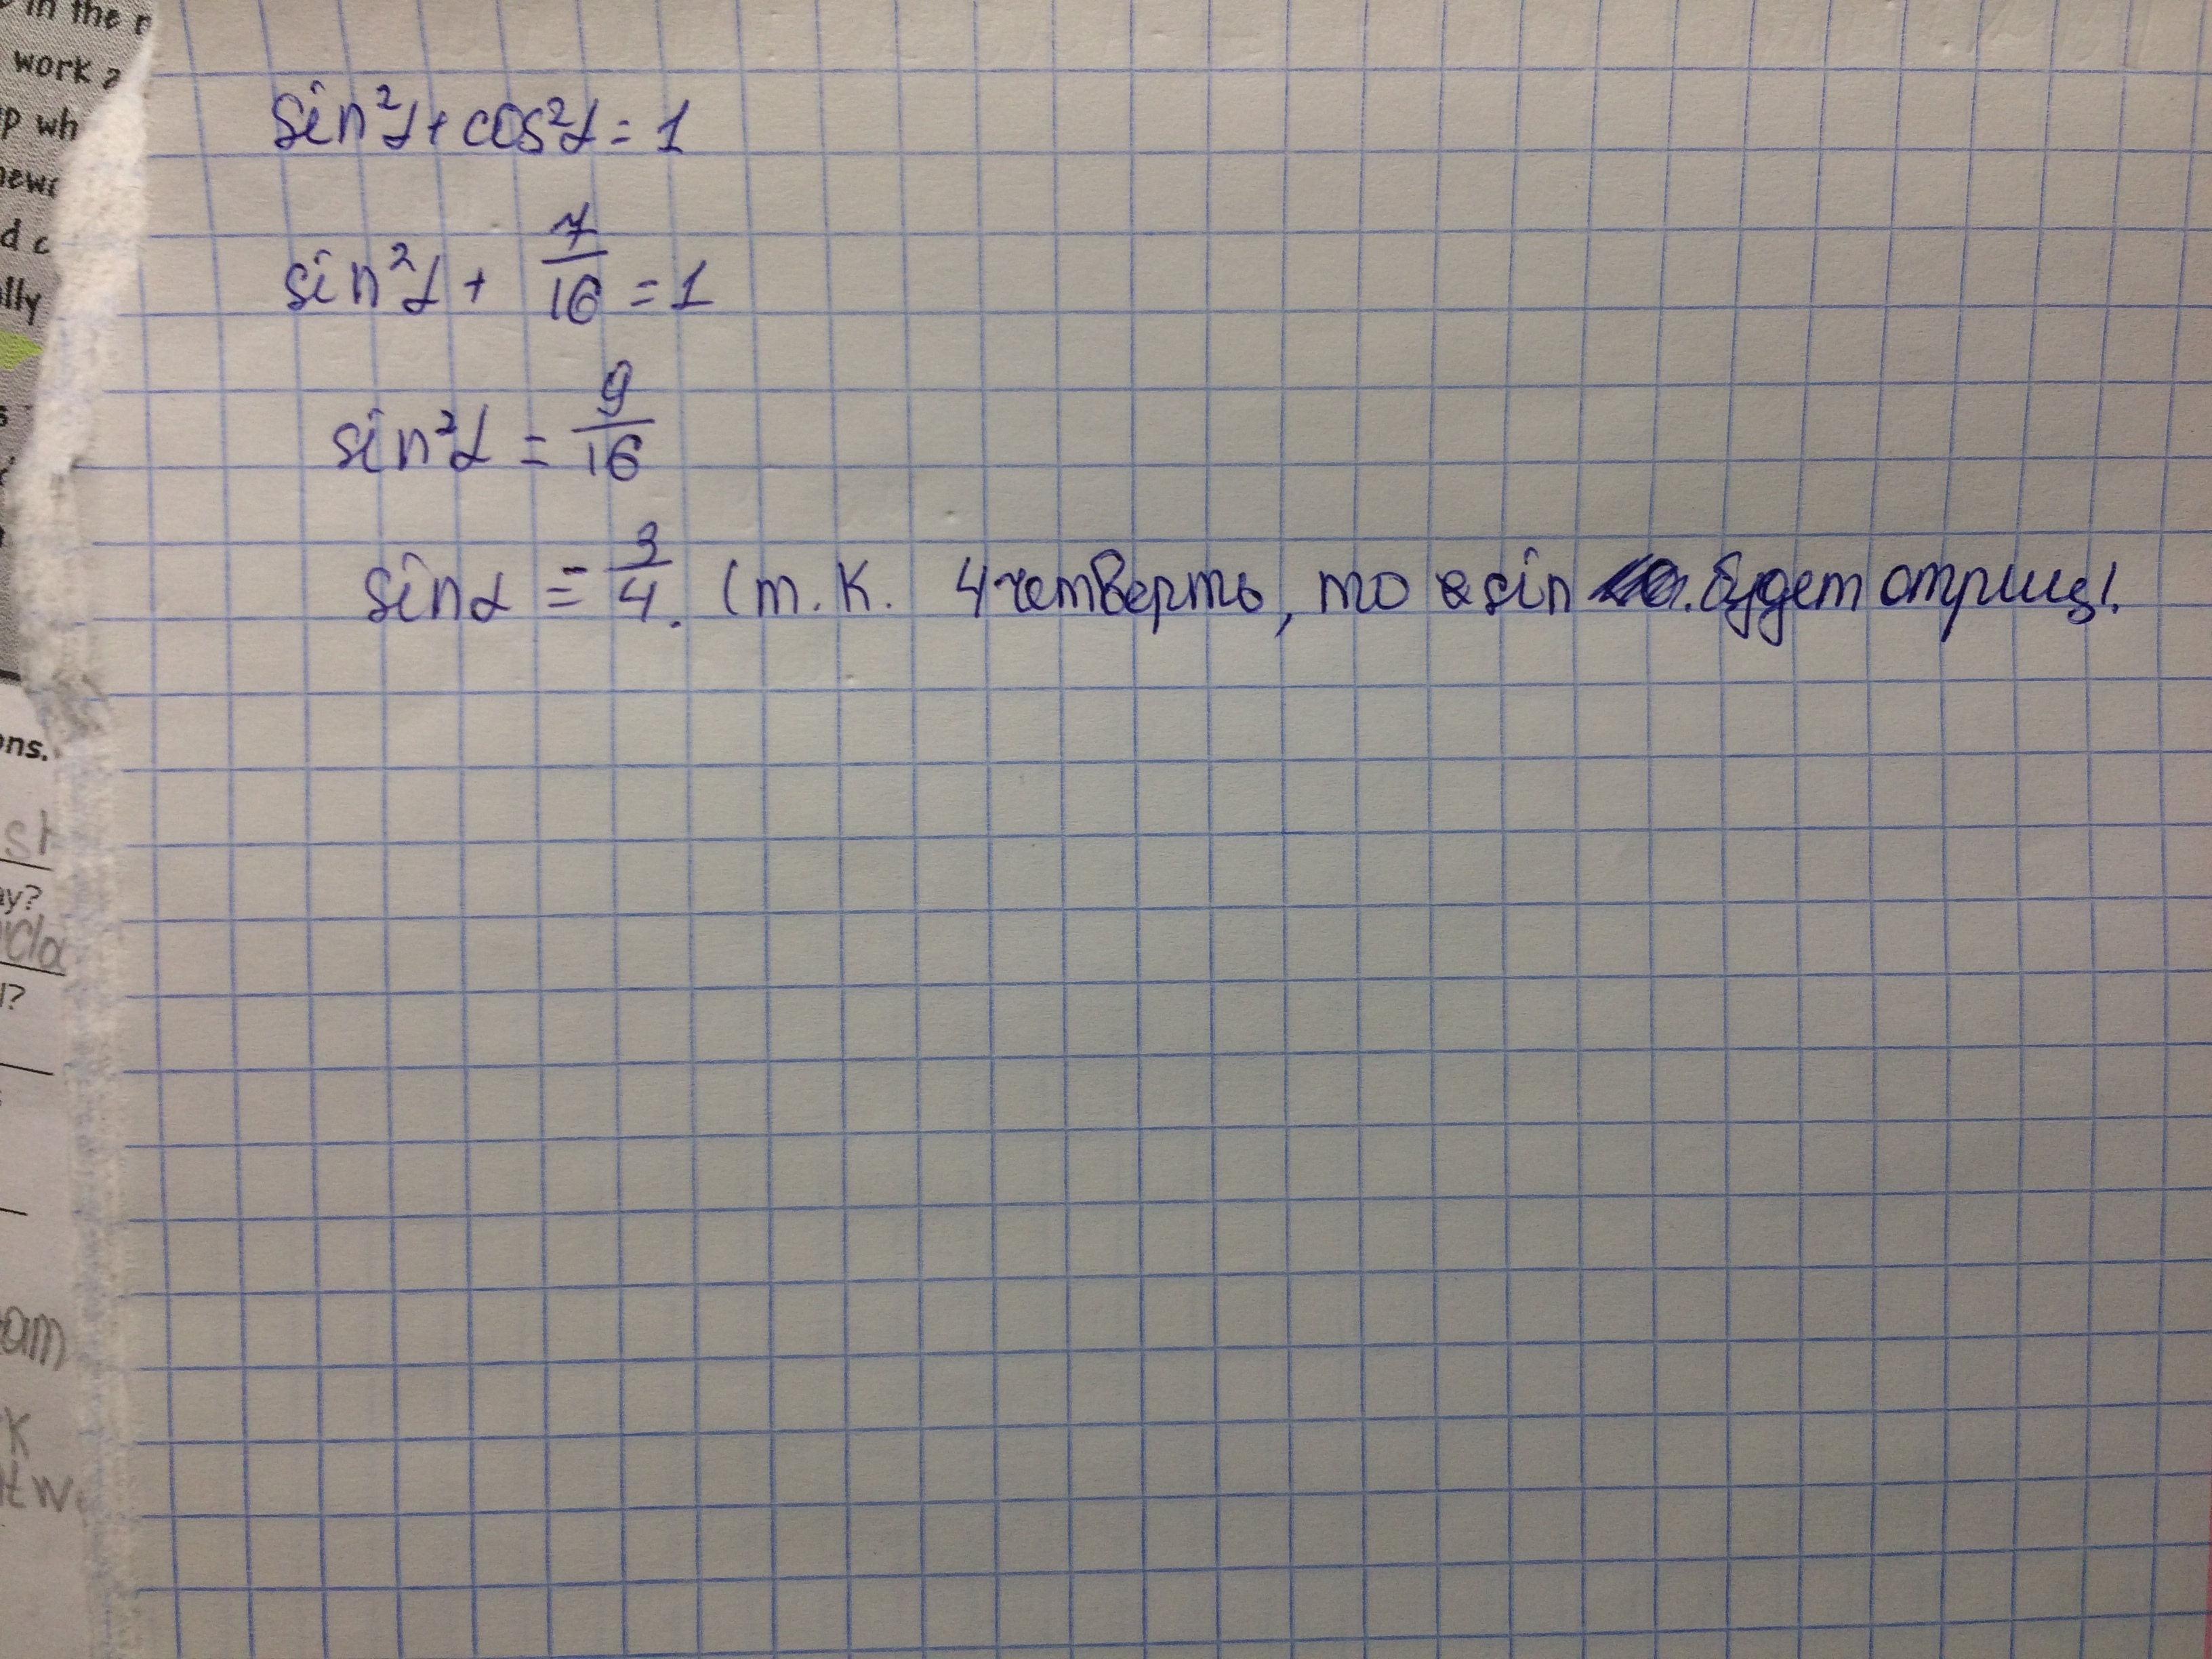 in the
work
p wh
d c
ally
ons.
ay?
sin²α + cos²α = 1
sin²α + 7/16 = 1
sin²α = 9/16
sinα = -3/4. (т.к. 4 четверть, то sin будет отриц).